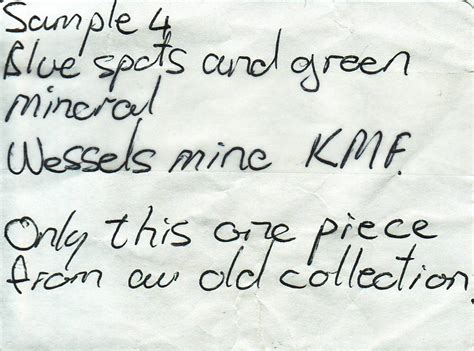 Sample 4
Blue spots and green
mineral
Wessels mine KMF.
Only this one piece
from an old collection.